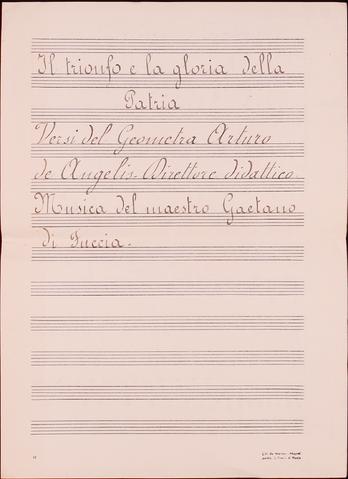 Il trionfo e la gloria della
Patria
Versi del Geometra Arturo
de Angelis - Direttore didattico
Musica del maestro Gaetano
di Tuccia.